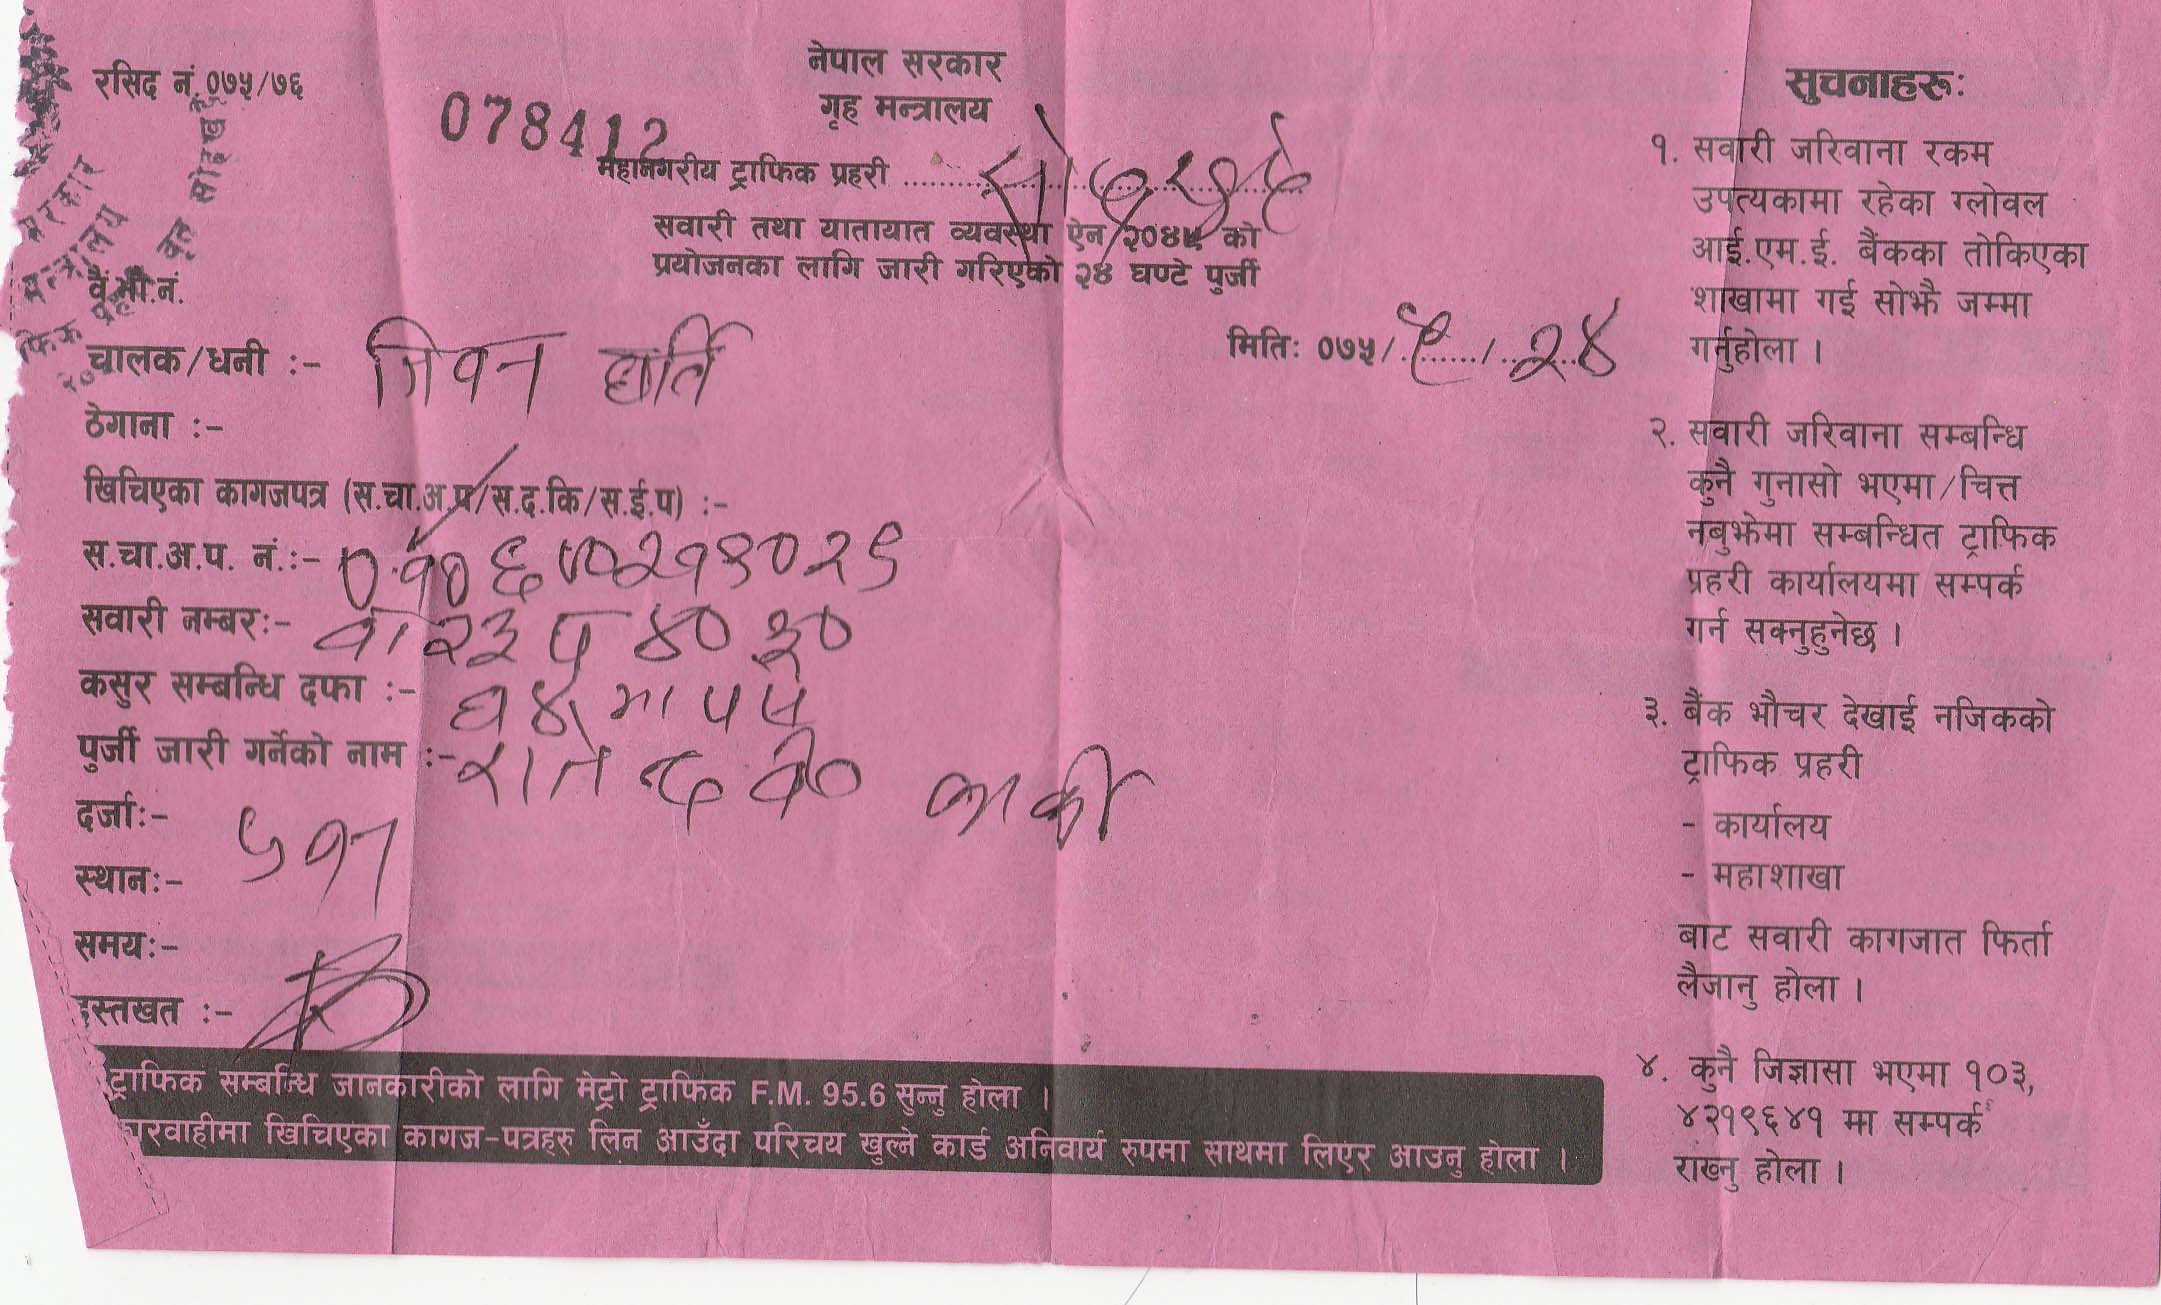 रसिद नं. ०७५/७६
078412
नेपाल सरकार
गृह मन्त्रालय
महानगरीय ट्राफिक प्रहरी
सवारी तथा यातायात व्यवस्था ऐन २०४९ को
प्रयोजनका लागि जारी गरिएको २४ घण्टे पुर्जी
मितिः ०७५/९/२४
चालक/धनी :- जिवन घर्ति
ठेगाना :-
खिचिएका कागजपत्र (स.चा.अ.प/स.द.कि/स.ई.प) :-
स.चा.अ.प. नं.:-
सवारी नम्बरः- बा २३ प ४०३०
कसुर सम्बन्धि दफा :-
पुर्जी जारी गर्नेको नाम :- कार्की
दर्जाः-
स्थानः-
समयः-
दस्तखत :-
ट्राफिक सम्बन्धि जानकारीको लागि मेट्रो ट्राफिक F.M. 95.6 सुन्नु होला ।
खिचिएका कागज-पत्रहरु लिन आउँदा परिचय खुल्ने कार्ड अनिवार्य रुपमा साथमा लिएर आउनु होला ।
सुचनाहरुः
१. सवारी जरिवाना रकम
उपत्यकामा रहेका ग्लोवल
आई.एम.ई. बैंकका तोकिएका
शाखामा गई सोझै जम्मा
गर्नुहोला ।
२. सवारी जरिवाना सम्बन्धि
कुनै गुनासो भएमा/चित्त
नबुझेमा सम्बन्धित ट्राफिक
प्रहरी कार्यालयमा सम्पर्क
गर्न सक्नुहुनेछ ।
३. बैंक भौचर देखाई नजिकको
ट्राफिक प्रहरी
- कार्यालय
- महाशाखा
बाट सवारी कागजात फिर्ता
लैजानु होला ।
४. कुनै जिज्ञासा भएमा १०३,
४२१९६४१ मा सम्पर्क
राख्नु होला ।